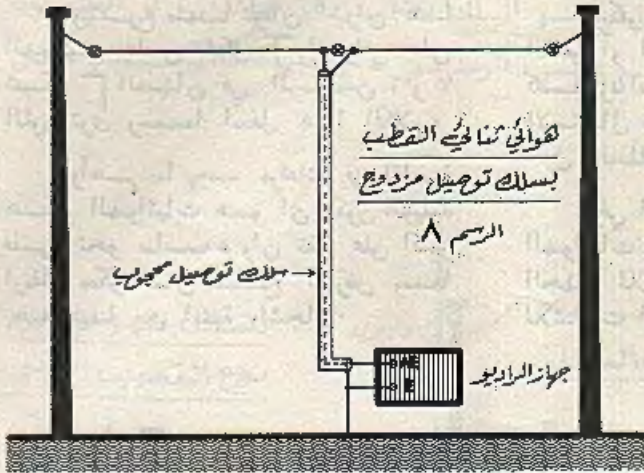 هوائي ثنائي القطب
بسلك توصيل مزدوج
الرسم ٨
سلك توصيل محجوب
جهاز الراديو
AE
E